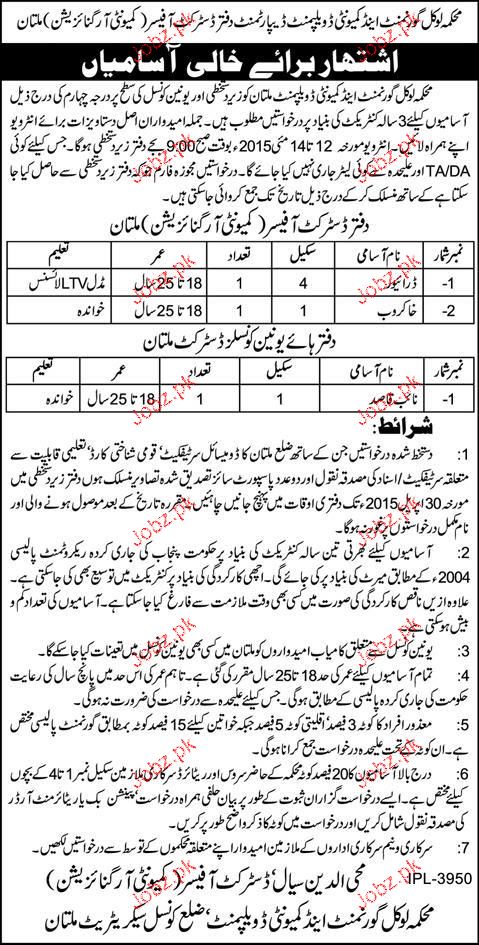 محکمہ لوکل گورنمنٹ اینڈ کمیونٹی ڈویلپمنٹ ڈیپارٹمنٹ دفتر ڈسٹرکٹ آفیسر (کمیونٹی آرگنائزیشن) ملتان
اشتہار برائے خالی آسامیاں
محکمہ لوکل گورنمنٹ اینڈ کمیونٹی ڈویلپمنٹ ملتان کو زیر دستخطی اور یونین کونسل کی سطح پر درجہ چہارم کی درج ذیل
آسامیوں کیلئے 3 سالہ کنٹریکٹ کی بنیاد پر درخواستیں مطلوب ہیں۔ جملہ امیدواران اصل دستاویزات برائے انٹرویو
اپنے ہمراہ لائیں۔ انٹرویو مورخہ 12 تا 14 مئی 2015ء بوقت صبح 9:00 بجے دفتر زیر دستخطی ہوگا۔ جس کیلئے کوئی
TA/DA اور علیحدہ سے کوئی لیٹر جاری نہیں کیا جائے گا۔ درخواستیں مجوزہ فارم جو کہ دفتر زیر دستخطی سے حاصل کیا جا
سکتا ہے کے ساتھ منسلک کر کے درج ذیل تاریخ تک جمع کروائی جا سکتی ہیں۔
دفتر ڈسٹرکٹ آفیسر (کمیونٹی آرگنائزیشن) ملتان
نمبر شمار نام آسامی سکیل تعداد عمر تعلیم
1- ڈرائیور 4 1 18 تا 25 سال مڈل LTV لائسنس
2- خاکروب 1 1 18 تا 25 سال خواندہ
دفتر ہائے یونین کونسلز ڈسٹرکٹ ملتان
نمبر شمار نام آسامی سکیل تعداد عمر تعلیم
1- نائب قاصد 1 1 18 تا 25 سال خواندہ
شرائط:
1: دستخط شدہ درخواستیں جن کے ساتھ ضلع ملتان کا ڈومیسائل سرٹیفکیٹ، قومی شناختی کارڈ، تعلیمی قابلیت سے
متعلقہ سرٹیفکیٹ/اسناد کی مصدقہ نقول اور دو عدد پاسپورٹ سائز تصدیق شدہ تصاویر منسلک ہوں دفتر زیر دستخطی میں
مورخہ 30 اپریل 2015ء تک دفتری اوقات میں پہنچ جانی چاہئیں۔ مقررہ تاریخ کے بعد موصول ہونے والی اور
نامکمل درخواستوں پر غور نہ ہوگا۔
2: آسامیوں کیلئے بھرتی تین سالہ کنٹریکٹ کی بنیاد پر حکومت پنجاب کی جاری کردہ ریکروٹمنٹ پالیسی
2004ء کے مطابق میرٹ کی بنیاد پر کی جائے گی۔ اچھی کارکردگی کی بنیاد پر کنٹریکٹ میں توسیع بھی کی جا سکتی ہے۔
علاوہ ازیں ناقص کارکردگی کی صورت میں کسی بھی وقت ملازمت سے فارغ کیا جا سکتا ہے۔ آسامیوں کی تعداد کم و
بیش ہو سکتی ہے۔
3: یونین کونسل سے متعلق کامیاب امیدواروں کو ملتان میں کسی بھی یونین کونسل میں تعینات کیا جا سکے گا۔
4: تمام آسامیوں کیلئے عمر کی حد 18 تا 25 سال مقرر کی گئی ہے۔ تاہم عمر کی اس حد میں پانچ سال کی رعایت
حکومت کی جاری کردہ پالیسی کے مطابق ہوگی۔ جس کیلئے علیحدہ سے درخواست کی ضرورت نہ ہوگی۔
5: معذور افراد کا کوٹہ 3 فیصد، اقلیتی کوٹہ 5 فیصد جبکہ خواتین کیلئے 15 فیصد کوٹہ بمطابق گورنمنٹ پالیسی مختص
ہے۔ ان کوٹہ کے تحت علیحدہ درخواست جمع کرانا ہوگی۔
6: درج بالا آسامیوں کا 20 فیصد کوٹہ محکمہ کے حاضر سروس اور ریٹائرڈ سرکاری ملازمین سکیل نمبر 1 تا 4 کے بچوں
کیلئے مختص ہے۔ ایسے درخواست گزاران ثبوت کے طور پر بیان حلفی ہمراہ درخواست، پینشن بک یا ریٹائرمنٹ آرڈر
کی مصدقہ نقول شامل کریں اور درخواست میں کوٹہ کا ذکر واضح طور پر کریں۔
7: سرکاری و نیم سرکاری اداروں کے ملازمین امیدوار اپنے متعلقہ محکموں کے توسط سے درخواستیں بھیجیں۔
IPL-3950 محی الدین سیال، ڈسٹرکٹ آفیسر (کمیونٹی آرگنائزیشن)
محکمہ لوکل گورنمنٹ اینڈ کمیونٹی ڈویلپمنٹ، ضلع کونسل سیکرٹریٹ ملتان
Jobz.pk